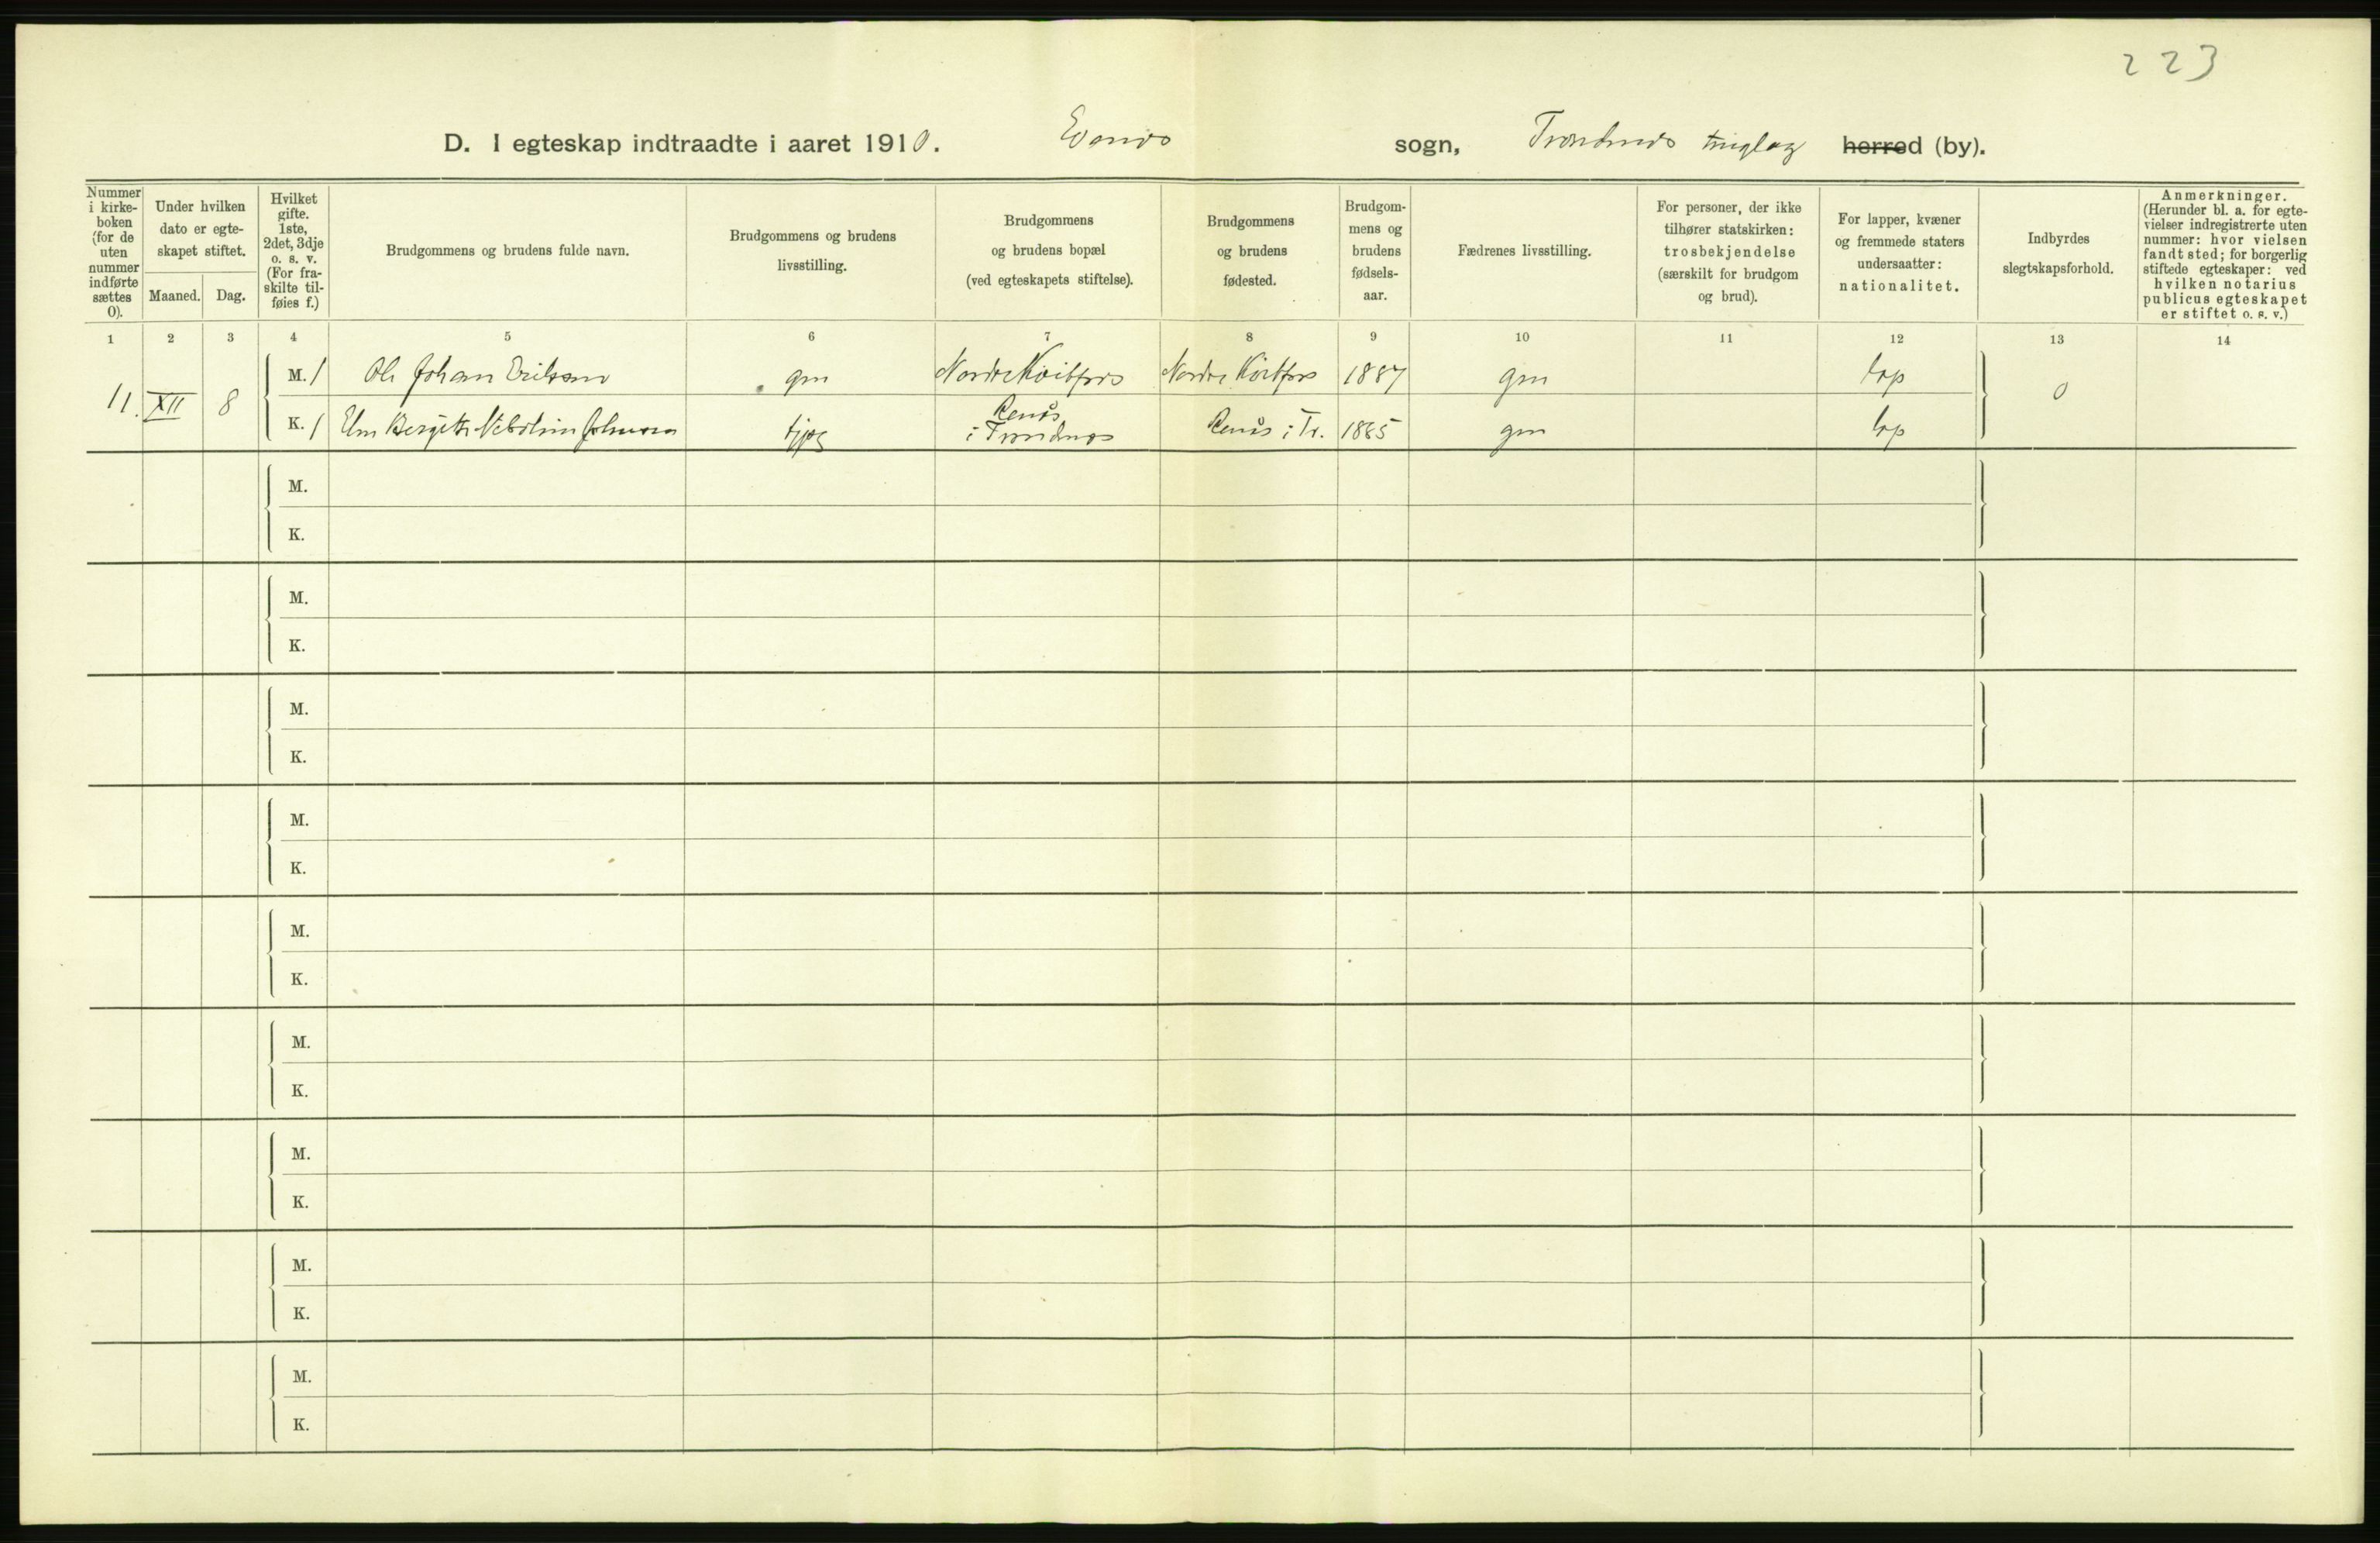 223
D. I egteskap indtraadte i aaret 1910. Evenes sogn, Trondenes tinglag herred (by).
Nummer i kirkeboken (for de uten nummer indførte sættes 0).
Under hvilken dato er egteskapet stiftet.
Maaned. Dag.
Hvilket gifte. 1ste, 2det, 3dje o. s. v. (For fraskilte tilføies f.)
Brudgommens og brudens fulde navn.
Brudgommens og brudens livsstilling.
Brudgommens og brudens bopæl (ved egteskapets stiftelse).
Brudgommens og brudens fødested.
Brudgommens og brudens fødselsaar.
Fædrenes livsstilling.
For personer, der ikke tilhører statskirken: trosbekjendelse (særskilt for brudgom og brud).
For lapper, kvæner og fremmede staters undersaatter: nationalitet.
Indbyrdes slegtskapsforhold.
Anmerkninger. (Herunder bl. a. for egtevielser indregistrerte uten nummer: hvor vielsen fandt sted; for borgerlig stiftede egteskaper: ved hvilken notarius publicus egteskapet er stiftet o. s. v.)
1 2 3 4 5 6 7 8 9 10 11 12 13 14
11. XII 8
M. 1 Ole Johan Eriksen gm Nordre Kvitfors Nordre Kvitfors 1887 gm lap
0
K. 1 Elen Bergitte Johnsen tjpg Renså i Trondenes Renså i Tr. 1885 gm lap
M.
K.
M.
K.
M.
K.
M.
K.
M.
K.
M.
K.
M.
K.
M.
K.
M.
K.